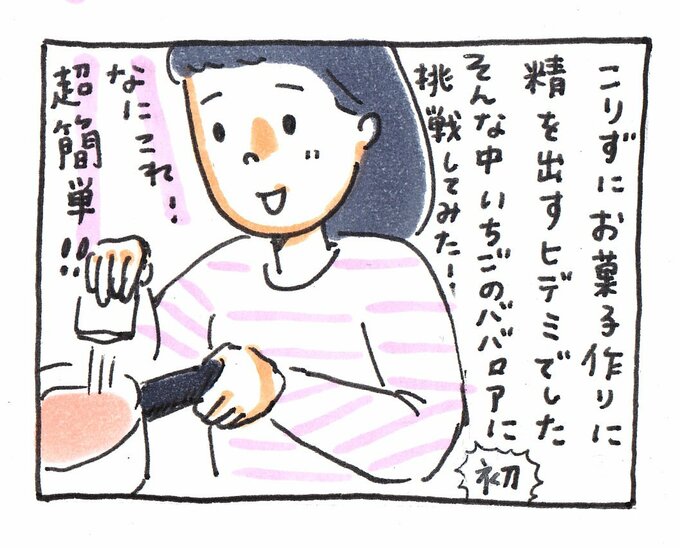 こりずにお菓子作りに
精を出すヒデミでした
そんな中いちごのババロアに
挑戦してみた!
初
なにこれ!
超簡単!!